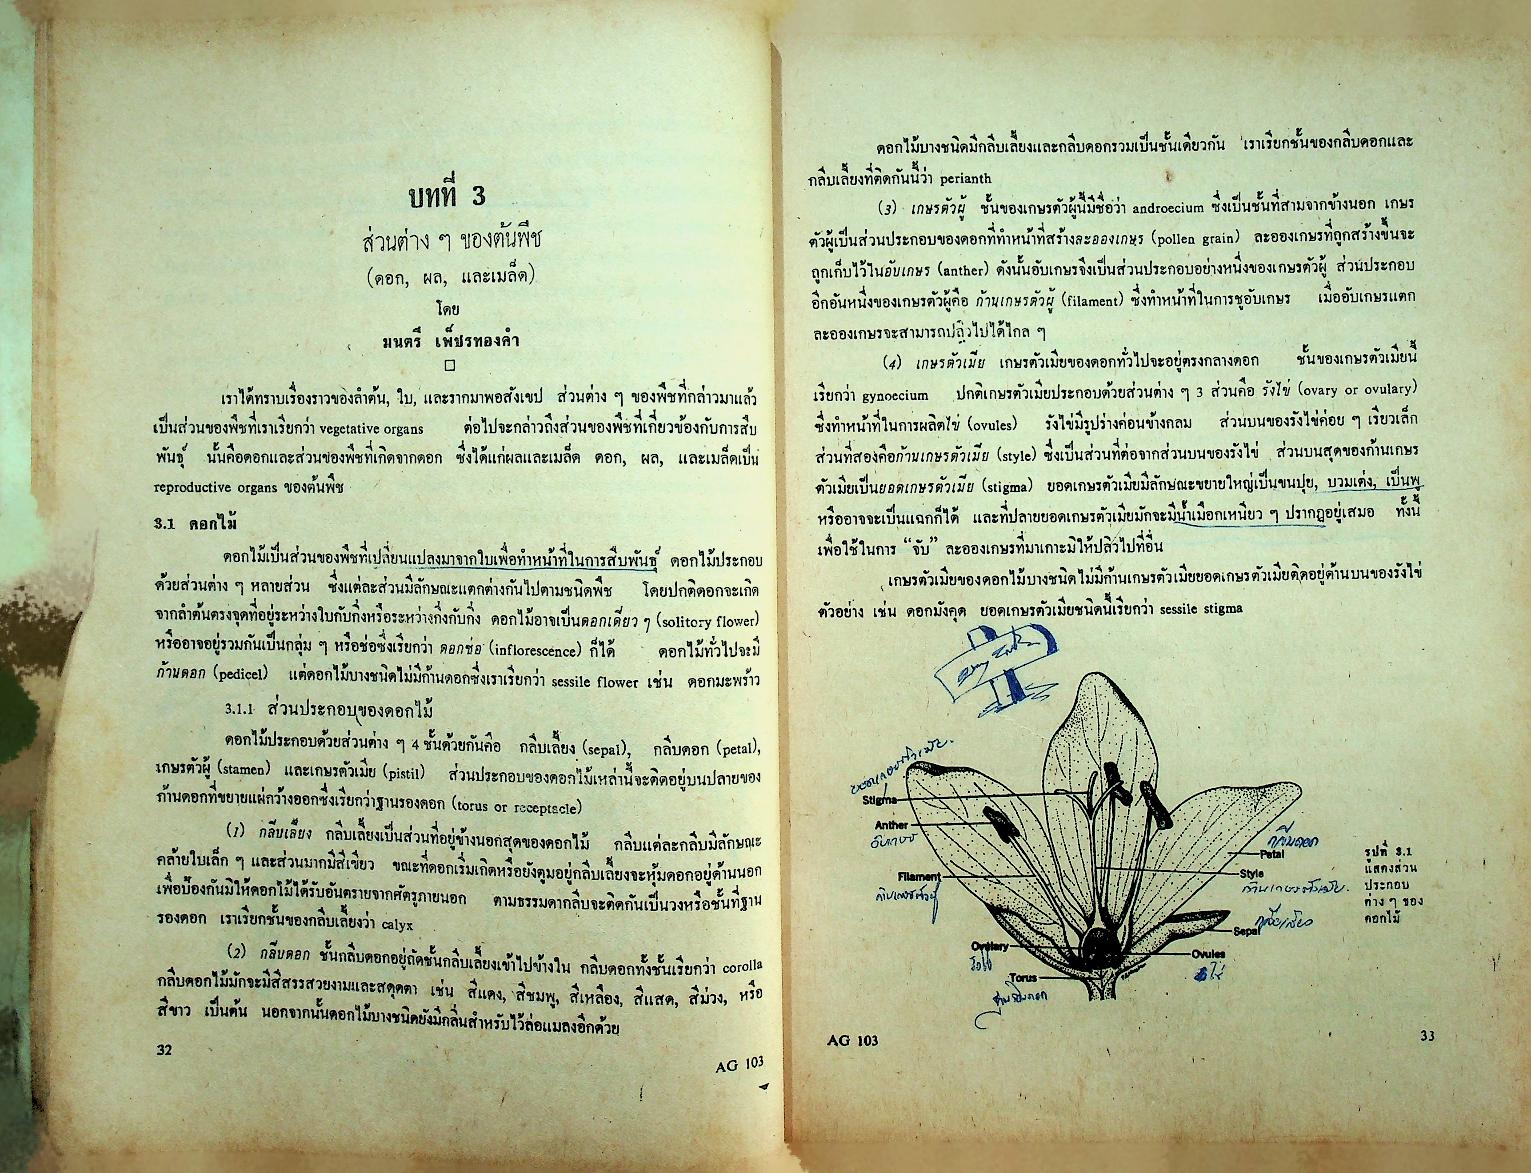 บทที่ 3
ส่วนต่าง ๆ ของต้นพืช
(ดอก, ผล, และเมล็ด)
โดย
มนตรี เพ็ชรทองคำ
เราได้ทราบเรื่องราวของลำต้น, ใบ, และรากมาพอสังเขป ส่วนต่าง ๆ ของพืชที่กล่าวมาแล้ว
เป็นส่วนของพืชที่เราเรียกว่า vegetative organs ต่อไปจะกล่าวถึงส่วนของพืชที่เกี่ยวข้องกับการสืบ
พันธุ์ นั่นคือดอกและส่วนของพืชที่เกิดจากดอก ซึ่งได้แก่ผลและเมล็ด ดอก, ผล, และเมล็ดเป็น
reproductive organs ของต้นพืช
3.1 ดอกไม้
ดอกไม้เป็นส่วนของพืชที่เปลี่ยนแปลงมาจากใบเพื่อทำหน้าที่ในการสืบพันธุ์ ดอกไม้ประกอบ
ด้วยส่วนต่าง ๆ หลายส่วน ซึ่งแต่ละส่วนมีลักษณะแตกต่างกันไปตามชนิดพืช โดยปกติดอกจะเกิด
จากลำต้นตรงจุดที่อยู่ระหว่างใบกับกิ่งหรือระหว่างกิ่งกับกิ่ง ดอกไม้อาจเป็นดอกเดี่ยว ๆ (solitory flower)
หรืออาจอยู่รวมกันเป็นกลุ่ม ๆ หรือช่อซึ่งเรียกว่า ดอกช่อ (inflorescence) ก็ได้ ดอกไม้ทั่วไปจะมี
ก้านดอก (pedicel) แต่ดอกไม้บางชนิดไม่มีก้านดอกซึ่งเราเรียกว่า sessile flower เช่น ดอกมะพร้าว
3.1.1 ส่วนประกอบของดอกไม้
ดอกไม้ประกอบด้วยส่วนต่าง ๆ 4 ชั้นด้วยกันคือ กลีบเลี้ยง (sepal), กลีบดอก (petal),
เกษรตัวผู้ (stamen) และเกษรตัวเมีย (pistil) ส่วนประกอบของดอกไม้เหล่านี้จะติดอยู่บนปลายของ
ก้านดอกที่ขยายแผ่กว้างออกซึ่งเรียกว่าฐานรองดอก (torus or receptacle)
(1) กลีบเลี้ยง กลีบเลี้ยงเป็นส่วนที่อยู่ข้างนอกสุดของดอกไม้ กลีบแต่ละกลีบมีลักษณะ
คล้ายใบเล็ก ๆ และส่วนมากมีสีเขียว ขณะที่ดอกเริ่มเกิดหรือยังตูมอยู่กลีบเลี้ยงจะหุ้มดอกอยู่ด้านนอก
เพื่อป้องกันมิให้ดอกไม้ได้รับอันตรายจากศัตรูภายนอก ตามธรรมดากลีบจะติดกันเป็นวงหรือชั้นที่ฐาน
รองดอก เราเรียกชั้นของกลีบเลี้ยงว่า calyx
(2) กลีบดอก ชั้นกลีบดอกอยู่ถัดชั้นกลีบเลี้ยงเข้าไปข้างใน กลีบดอกทั้งชั้นเรียกว่า corolla
กลีบดอกไม้มักจะมีสีสรรสวยงามและสดุดตา เช่น สีแดง, สีชมพู, สีเหลือง, สีแสด, สีม่วง, หรือ
สีขาว เป็นต้น นอกจากนั้นดอกไม้บางชนิดยังมีกลิ่นสำหรับไว้ล่อแมลงอีกด้วย
32
AG 103
ดอกไม้บางชนิดมีกลีบเลี้ยงและกลีบดอกรวมเป็นชั้นเดียวกัน เราเรียกชั้นของกลีบดอกและ
กลีบเลี้ยงที่ติดกันนี้ว่า perianth
(3) เกษรตัวผู้ ชั้นของเกษรตัวผู้นี้มีชื่อว่า androecium ซึ่งเป็นชั้นที่สามจากข้างนอก เกษร
ตัวผู้เป็นส่วนประกอบของดอกที่ทำหน้าที่สร้างละอองเกษร (pollen grain) ละอองเกษรที่ถูกสร้างขึ้นจะ
ถูกเก็บไว้ในอับเกษร (anther) ดังนั้นอับเกษรจึงเป็นส่วนประกอบอย่างหนึ่งของเกษรตัวผู้ ส่วนประกอบ
อีกอันหนึ่งของเกษรตัวผู้คือ ก้านเกษรตัวผู้ (filament) ซึ่งทำหน้าที่ในการชูอับเกษร เมื่ออับเกษรแตก
ละอองเกษรจะสามารถปลิวไปได้ไกล ๆ
(4) เกษรตัวเมีย เกษรตัวเมียของดอกทั่วไปจะอยู่ตรงกลางดอก ชั้นของเกษรตัวเมียนี้
เรียกว่า gynoecium ปกติเกษรตัวเมียประกอบด้วยส่วนต่าง ๆ 3 ส่วนคือ รังไข่ (ovary or ovulary)
ซึ่งทำหน้าที่ในการผลิตไข่ (ovules) รังไข่มีรูปร่างค่อนข้างกลม ส่วนบนของรังไข่ค่อย ๆ เรียวเล็ก
ส่วนที่สองคือก้านเกษรตัวเมีย (style) ซึ่งเป็นส่วนที่ต่อจากส่วนบนของรังไข่ ส่วนบนสุดของก้านเกษร
ตัวเมียเป็นยอดเกษรตัวเมีย (stigma) ยอดเกษรตัวเมียมีลักษณะขยายใหญ่เป็นขนปุย, บวมเต่ง, เป็นพู
หรืออาจจะเป็นแฉกก็ได้ และที่ปลายยอดเกษรตัวเมียมักจะมีน้ำเมือกเหนียว ๆ ปรากฏอยู่เสมอ ทั้งนี้
เพื่อใช้ในการ “จับ” ละอองเกษรที่มาเกาะมิให้ปลิวไปที่อื่น
เกษรตัวเมียของดอกไม้บางชนิดไม่มีก้านเกษรตัวเมียยอดเกษรตัวเมียติดอยู่ด้านบนของรังไข่
ตัวอย่าง เช่น ดอกมังคุด ยอดเกษรตัวเมียชนิดนี้เรียกว่า sessile stigma
ยอดเกษรตัวเมีย
Stigma
Anther
อับเกษร
Filament
ก้านเกษรตัวผู้
Ovulary
รังไข่
Torus
ฐานรองดอก
กลีบดอก
Petal
Style
ก้านเกษรตัวเมีย
Sepal
กลีบเลี้ยง
Ovules
ไข่
รูปที่ 3.1
แสดงส่วน
ประกอบ
ต่าง ๆ ของ
ดอกไม้
AG 103
33